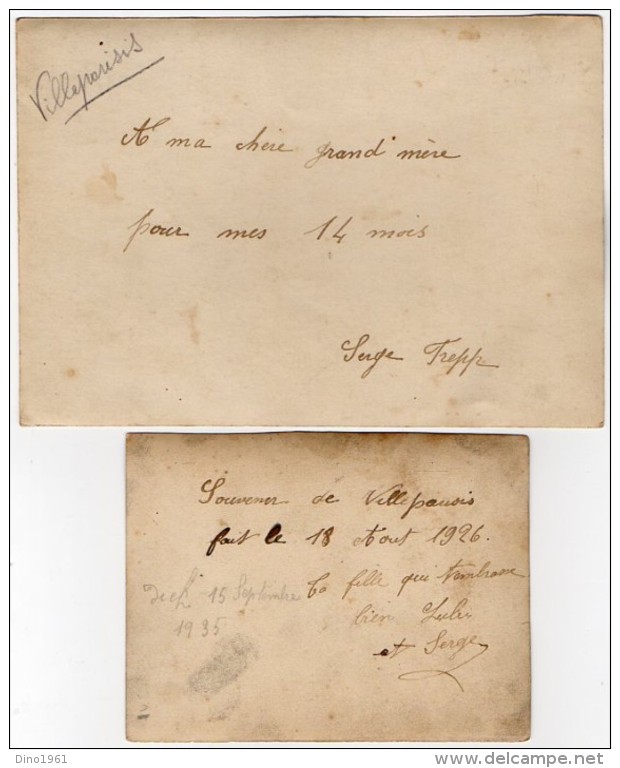 Villeparisis
A ma chère grand'mère
pour mes 14 mois
Serge Trepp
Souvenir de Villeparisis
fait le 18 Aout 1926.
ta fille qui t'embrasse
15 Septembre
1935
bien Lulu
et Serge
Dino1961
delcampe.net